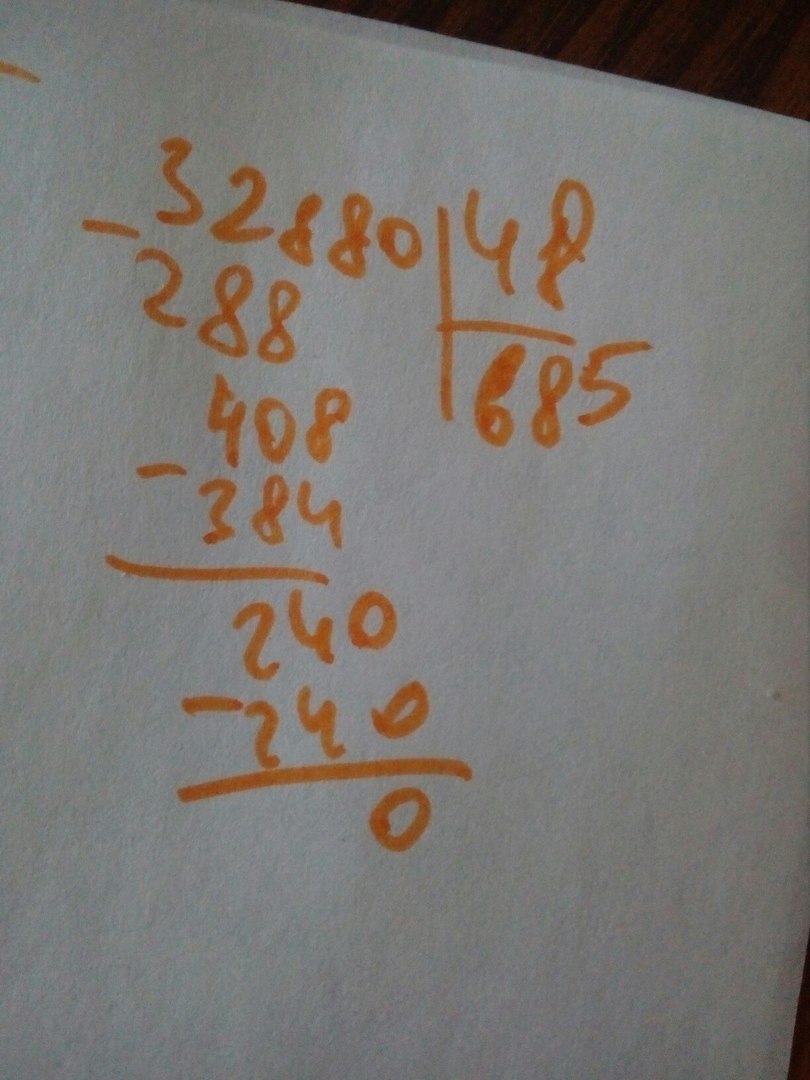 - 32880 | 48
288 | 685
408
- 384
240
- 240
0